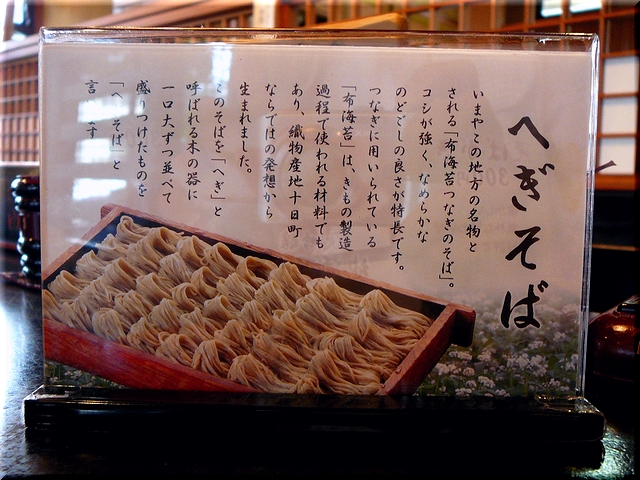 へぎそば
いまやこの地方の名物と
される「布海苔つなぎのそば」。
コシが強く、なめらかな
のどごしの良さが特長です。
つなぎに用いられている
「布海苔」は、きもの製造
過程で使われる材料でも
あり、織物産地十日町
ならではの発想から
生まれました。
このそばを「へぎ」と
呼ばれる木の器に
一口大ずつ並べて
盛りつけたものを
「へ そば」と
言 ます